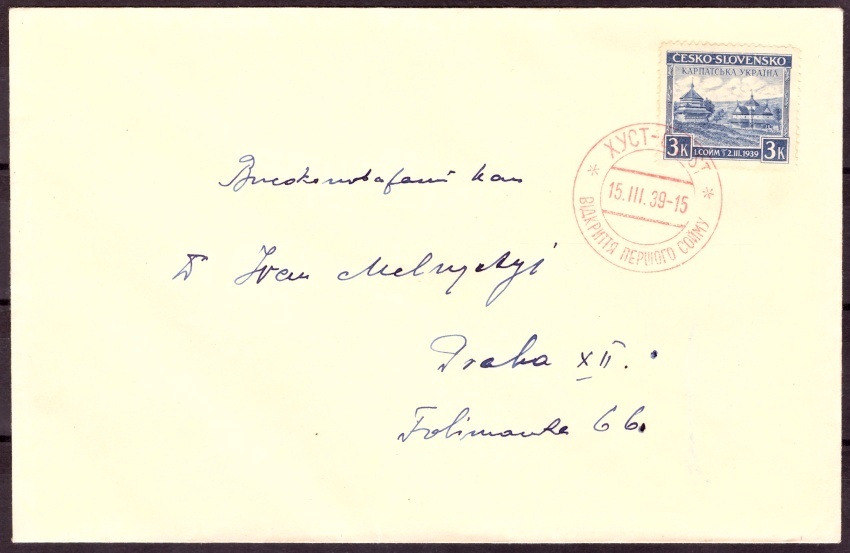 ČESKO-SLOVENSKO
КАРПАТСЬКА УКРАЇНА
3K I. СОЙМ 2.III.1939 3K
ХУСТ-
15.III.39-15
ВІДКРИТТЯ ПЕРШОГО СОЙМУ
Ivan
Praha XII.
Folimanka 66.